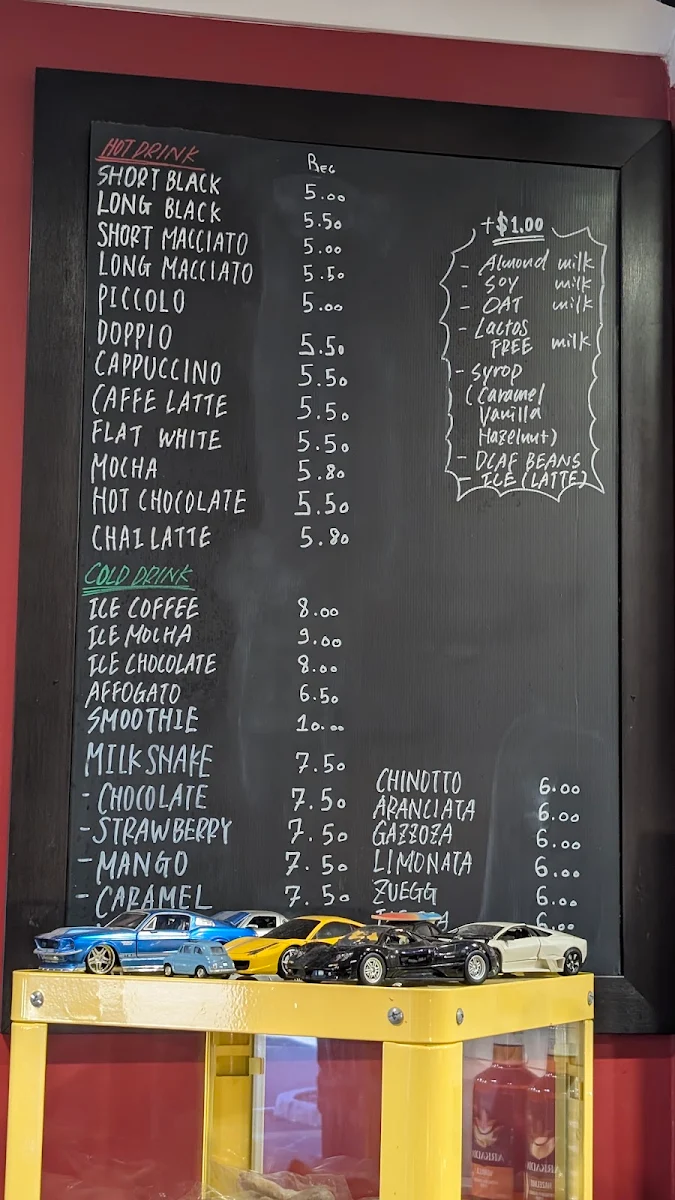 HOT DRINK REG
SHORT BLACK 5.00
LONG BLACK 5.50
SHORT MACCIATO 5.00
LONG MACCIATO 5.50
PICCOLO 5.00
DOPPIO 5.50
CAPPUCCINO 5.50
CAFFE LATTE 5.50
FLAT WHITE 5.50
MOCHA 5.80
HOT CHOCOLATE 5.50
CHAI LATTE 5.80
+$1.00
- Almond milk
- SOY milk
- OAT milk
- Lactos
FREE milk
- syrop
(Caramel
Vanilla
Hazelnut)
- DCAF BEANS
- ICE (LATTE)
COLD DRINK
ICE COFFEE 8.00
ICE MOCHA 9.00
ICE CHOCOLATE 8.00
AFFOGATO 6.50
SMOOTHIE 10.00
MILK SHAKE 7.50
- CHOCOLATE 7.50
- STRAWBERRY 7.50
- MANGO 7.50
- CARAMEL 7.50
CHINOTTO 6.00
ARANCIATA 6.00
GAZZOZA 6.00
LIMONATA 6.00
ZUEGG 6.00
6.00